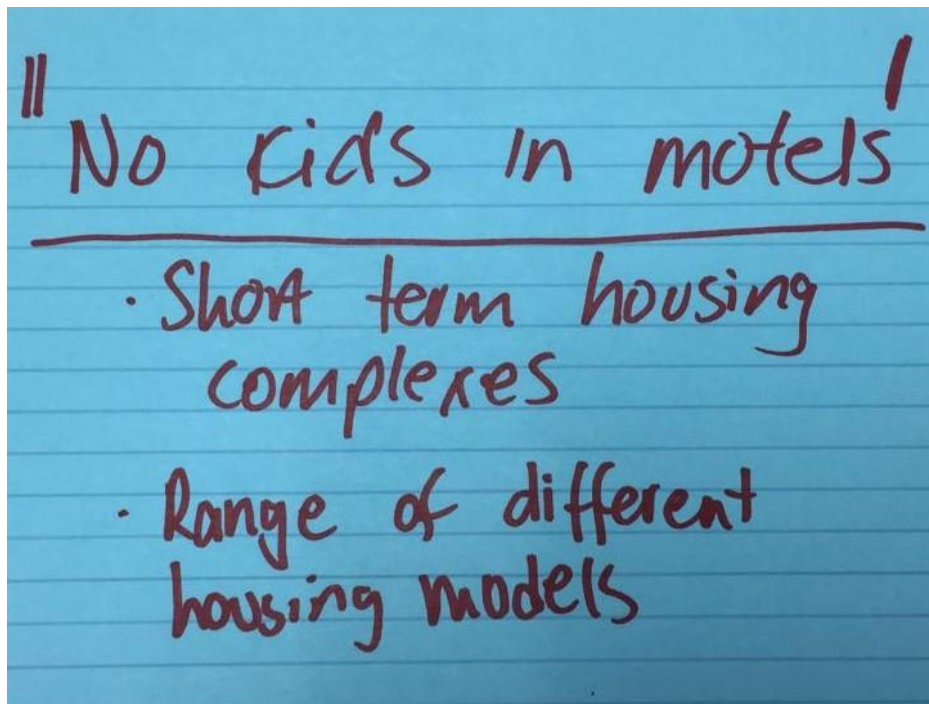 "No kids in motels'
· Short term housing
complexes
· Range of different
housing models